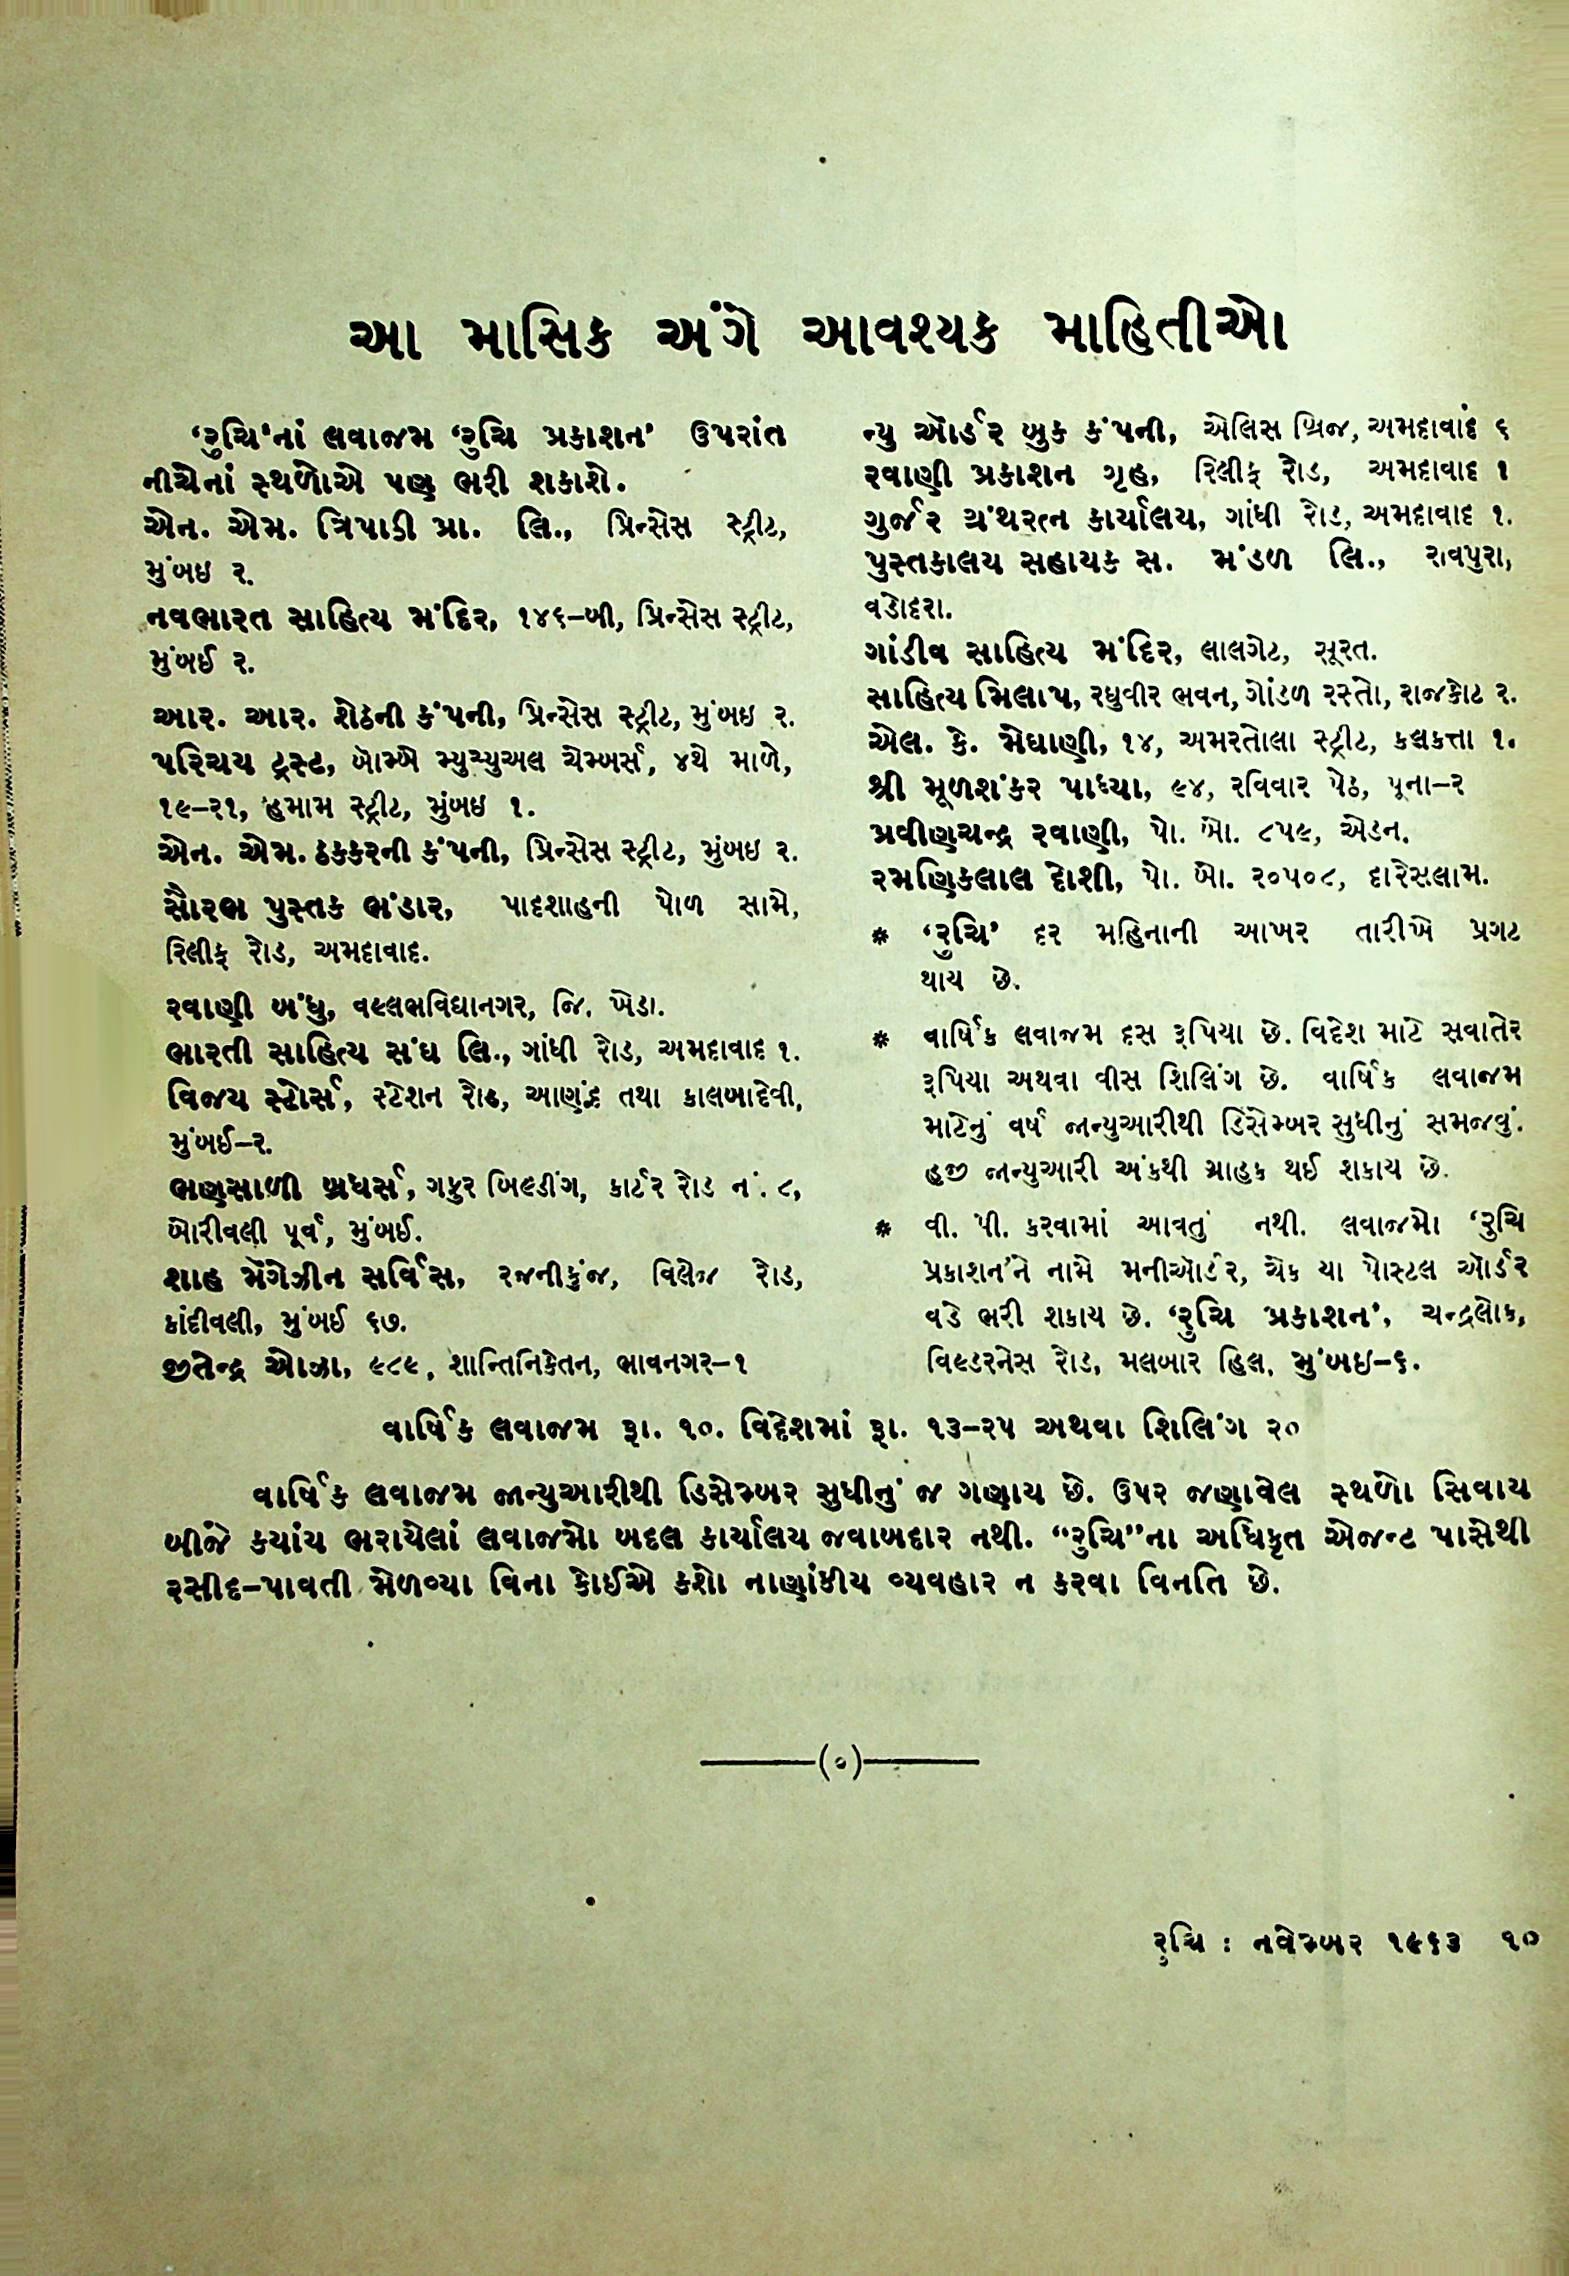 આ માસિક અંગે આવશ્યક માહિતીઓ
‘રુચિ’નાં લવાજમ ‘રુચિ પ્રકાશન’ ઉપરાંત
નીચેનાં સ્થળોએ પણ ભરી શકાશે.
એન. એમ. ત્રિપાઠી પ્રા. લિ., પ્રિન્સેસ સ્ટ્રીટ,
મુંબઇ ૨.
નવભારત સાહિત્ય મંદિર, ૧૪૬–બી, પ્રિન્સેસ સ્ટ્રીટ,
મુંબઈ ૨.
આર. આર. શેઠની કંપની, પ્રિન્સેસ સ્ટ્રીટ, મુંબઇ ૨.
પરિચય ટ્રસ્ટ, બૉમ્બે મ્યુચ્યુઅલ ચેમ્બર્સ, ૪થે માળે,
૧૯–૨૧, હમામ સ્ટ્રીટ, મુંબઇ ૧.
એન. એમ. ઠક્કરની કંપની, પ્રિન્સેસ સ્ટ્રીટ, મુંબઇ ૨.
સૌરભ પુસ્તક ભંડાર, પાદશાહની પોળ સામે,
રિલીફ રોડ, અમદાવાદ.
રવાણી બંધુ, વલ્લભવિદ્યાનગર, જિ. ખેડા.
ભારતી સાહિત્ય સંઘ લિ., ગાંધી રોડ, અમદાવાદ ૧.
વિજય સ્ટોર્સ, સ્ટેશન રોઢ, આણંદ તથા કાલબાદેવી,
મુંબઈ–૨.
ભણસાળી બ્રધર્સ, ગફુર બિલ્ડીંગ, કાર્ટર રોડ નં. ૮,
બોરીવલી પૂર્વ, મુંબઈ.
શાહ મૅગેઝીન સર્વિસ, રજનીકુંજ, વિલેજ રોડ,
કાંદીવલી, મુંબઈ ૬૭.
જીતેન્દ્ર ઓઝા, ૯૮૯, શાન્તિનિકેતન, ભાવનગર–૧
ન્યુ ઑર્ડર બુક કંપની, એલિસ બ્રિજ, અમદાવાદ ૬
રવાણી પ્રકાશન ગૃહ, રિલીફ રોડ, અમદાવાદ ૧
ગુર્જર ગ્રંથરત્ન કાર્યાલય, ગાંધી રોડ, અમદાવાદ ૧.
પુસ્તકાલય સહાયક સ. મંડળ લિ., રાવપુરા,
વડોદરા.
ગાંડીવ સાહિત્ય મંદિર, લાલગેટ, સૂરત.
સાહિત્ય મિલાપ, રઘુવીર ભવન, ગોંડળ રસ્તો, રાજકોટ ૨.
એલ. કે. મેઘાણી, ૧૪, અમરતોલા સ્ટ્રીટ, કલકત્તા ૧.
શ્રી મૂળશંકર પાધ્યા, ૯૪, રવિવાર પેઠ, પૂના–૨
પ્રવીણચન્દ્ર રવાણી, પો. બો. ૮૫૯, એડન.
રમણિકલાલ દોશી, પો. બો. ૨૦૫૦૮, દારેસલામ.
* ‘રુચિ’ દર મહિનાની આખર તારીખે પ્રગટ
થાય છે.
* વાર્ષિક લવાજમ દસ રૂપિયા છે. વિદેશ માટે સવાતેર
રૂપિયા અથવા વીસ શિલિંગ છે. વાર્ષિક લવાજમ
માટેનું વર્ષ જાન્યુઆરીથી ડિસેમ્બર સુધીનું સમજવું.
હજી જાન્યુઆરી અંકથી ગ્રાહક થઈ શકાય છે.
* વી. પી. કરવામાં આવતું નથી. લવાજમો ‘રુચિ
પ્રકાશન’ને નામે મનીઑર્ડર, ચેક યા પોસ્ટલ ઑર્ડર
વડે ભરી શકાય છે. ‘રુચિ પ્રકાશન’, ચન્દ્રલોક,
વિલ્ડરનેસ રોડ, મલબાર હિલ, મુંબઇ–૬.
વાર્ષિક લવાજમ રૂા. ૧૦. વિદેશમાં રૂા. ૧૩–૨૫ અથવા શિલિંગ ૨૦
વાર્ષિક લવાજમ જાન્યુઆરીથી ડિસેમ્બર સુધીનું જ ગણાય છે. ઉપર જણાવેલ સ્થળો સિવાય
બીજે કયાંય ભરાયેલાં લવાજમો બદલ કાર્યાલય જવાબદાર નથી. “રુચિ”ના અધિકૃત એજન્ટ પાસેથી
રસીદ–પાવતી મેળવ્યા વિના કોઈએ કશો નાણાંકીય વ્યવહાર ન કરવા વિનતિ છે.
(૦)
રુચિ : નવેમ્બર ૧૯૬૩ ૧૦